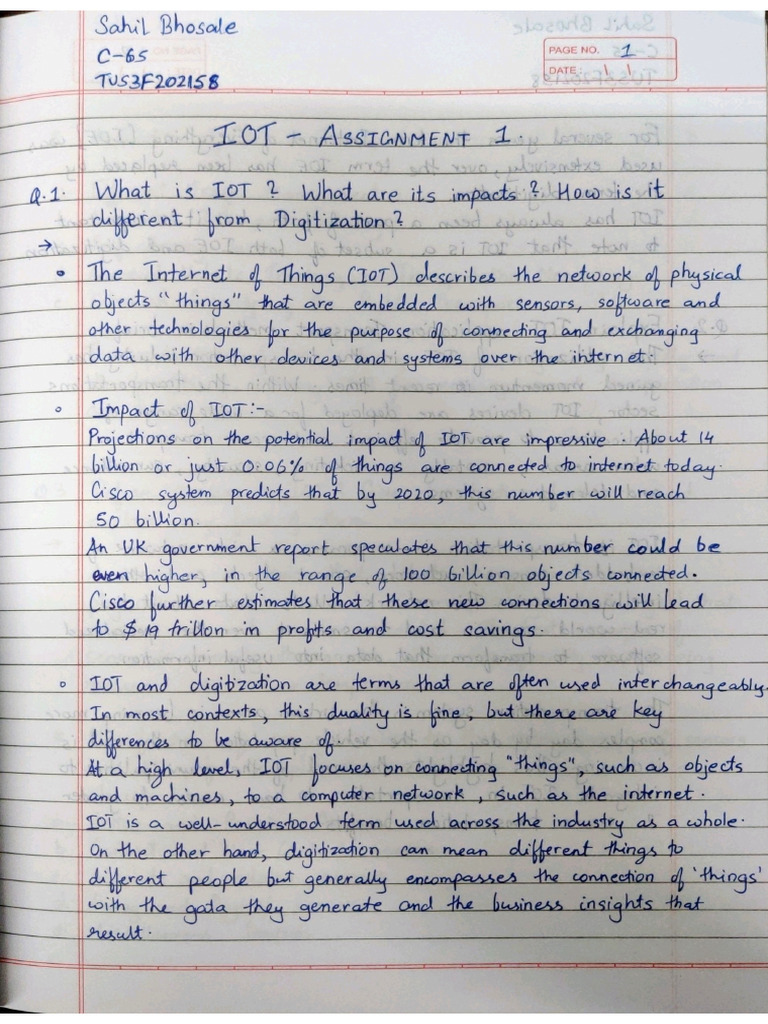 Sahil Bhosale
C-65
TUS3F202158
PAGE NO. 1
DATE: / /
IOT - ASSIGNMENT 1.
Q.1. What is IOT? What are its impacts? How is it
different from Digitization?
→
• The Internet of Things (IOT) describes the network of physical
objects "things" that are embedded with sensors, software and
other technologies for the purpose of connecting and exchanging
data with other devices and systems over the internet.
• Impact of IOT:-
Projections on the potential impact of IOT are impressive. About 14
billion or just 0.06% of things are connected to internet today.
Cisco system predicts that by 2020, this number will reach
50 billion.
An UK government report speculates that this number could be
even higher, in the range of 100 billion objects connected.
Cisco further estimates that these new connections will lead
to $19 trillon in profits and cost savings.
• IOT and digitization are terms that are often used interchangeably.
In most contexts, this duality is fine, but there are key
differences to be aware of.
At a high level, IOT focuses on connecting "things", such as objects
and machines, to a computer network, such as the internet.
IOT is a well-understood term used across the industry as a whole.
On the other hand, digitization can mean different things to
different people but generally encompasses the connection of 'things'
with the gata they generate and the business insights that
result.